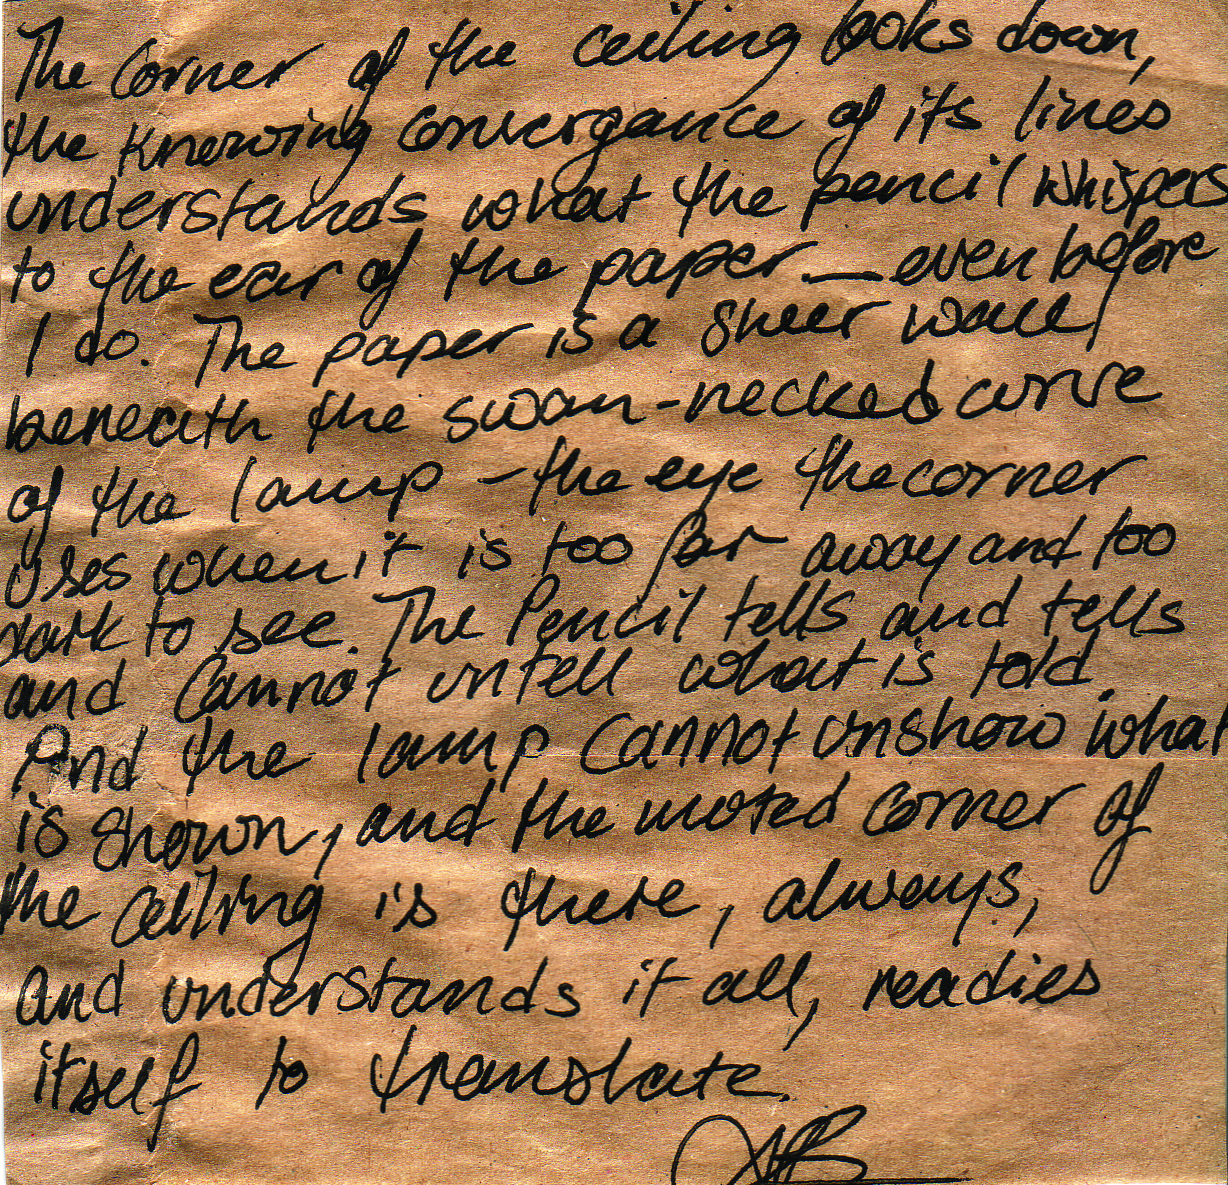 The Corner of the ceiling looks down,
the knowing convergance of its lines
understands what the pencil whispers
to the ear of the paper — even before
I do. The paper is a sheer wall,
beneath the swan-necked curve
of the lamp – the eye the corner
uses when it is too far away and too
dark to see. The Pencil tells and tells
and Cannot untell what is told.
And the lamp Cannot unshow what
is shown, and the moted corner of
the ceiling is there, always,
and understands it all, readies
itself to translate.